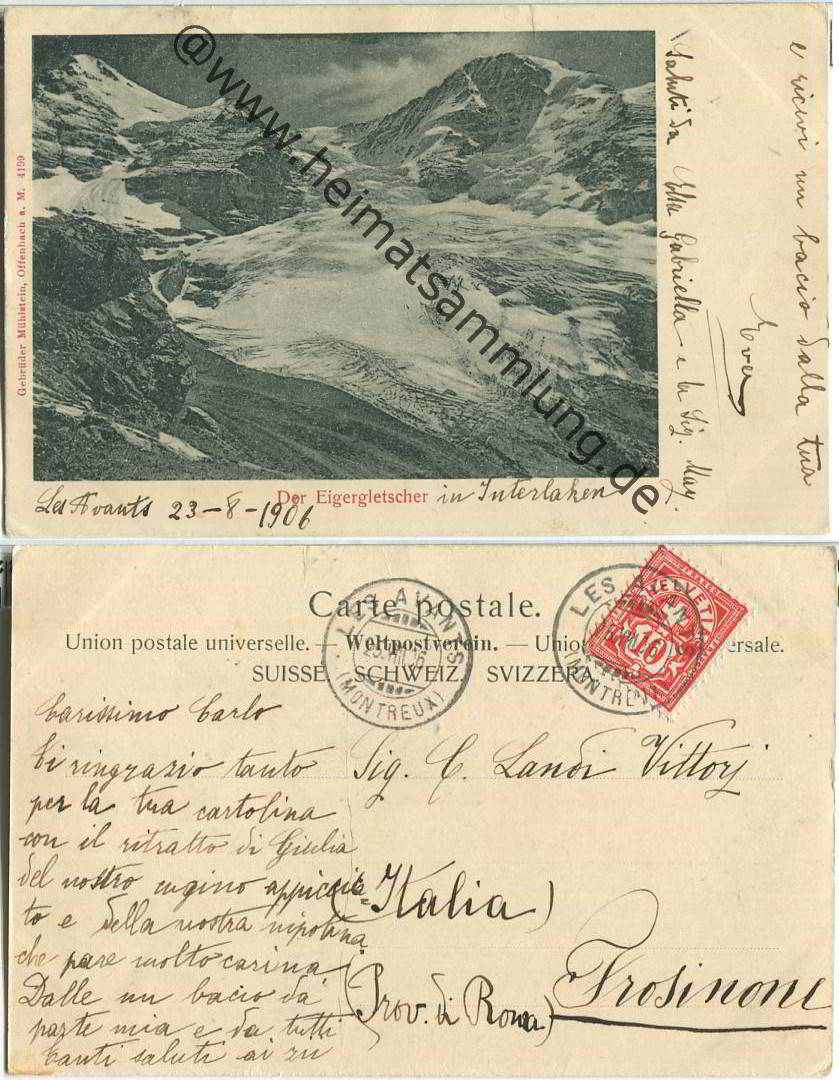 @www.heimatsammlung.de
Gebrüder Mühlstein, Offenbach a. M. 4199
Der Eigergletscher in Interlaken
Les Avants 23-8-1906
Saluti da Gabriella e la Sig. May.
e ricevi un bacio dalla tua
Carte postale.
Union postale universelle. — Weltpostverein. — Unione postale universale.
SUISSE. SCHWEIZ. SVIZZERA.
LES AVANTS
(MONTREUX)
LES
(MONTREUX)
HELVETIA
10
Carissimo Carlo
Ti ringrazio tanto
per la tua cartolina
con il ritratto di Giulia
del nostro cugino appiccica=
to e della nostra nipotina
che pare molto carina
Dalle un bacio da
parte mia e da tutti
tanti saluti ai zii
Sig. C. Landi Vittorj
(Italia)
Frosinone
(Prov. di Roma)